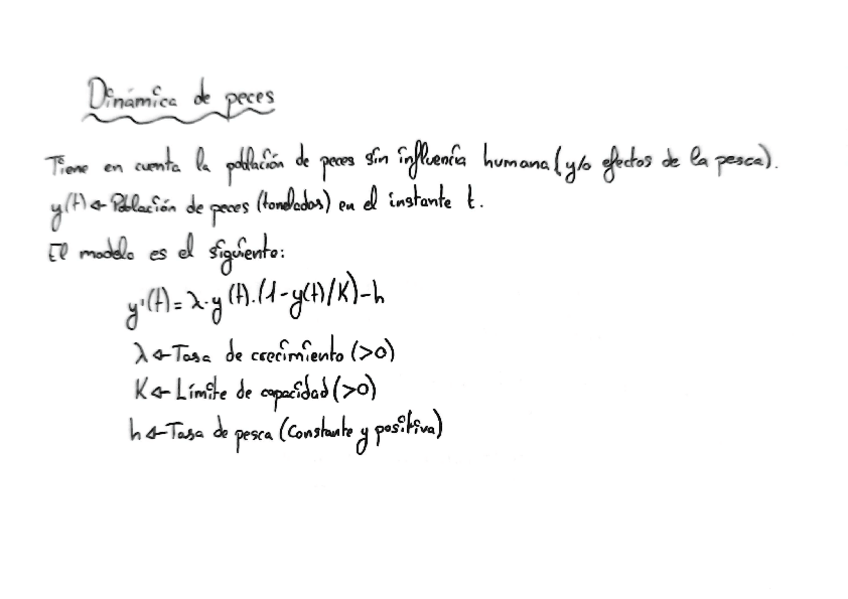 Dinámica de peces
Tiene en cuenta la población de peces sin influencia humana (y/o efectos de la pesca).
y(t) ← Población de peces (toneladas) en el instante t.
El modelo es el siguiente:
y'(t) = λ·y(t)·(1 - y(t)/K) - h
λ ← Tasa de crecimiento (>0)
K ← Límite de capacidad (>0)
h ← Tasa de pesca (Constante y positiva)